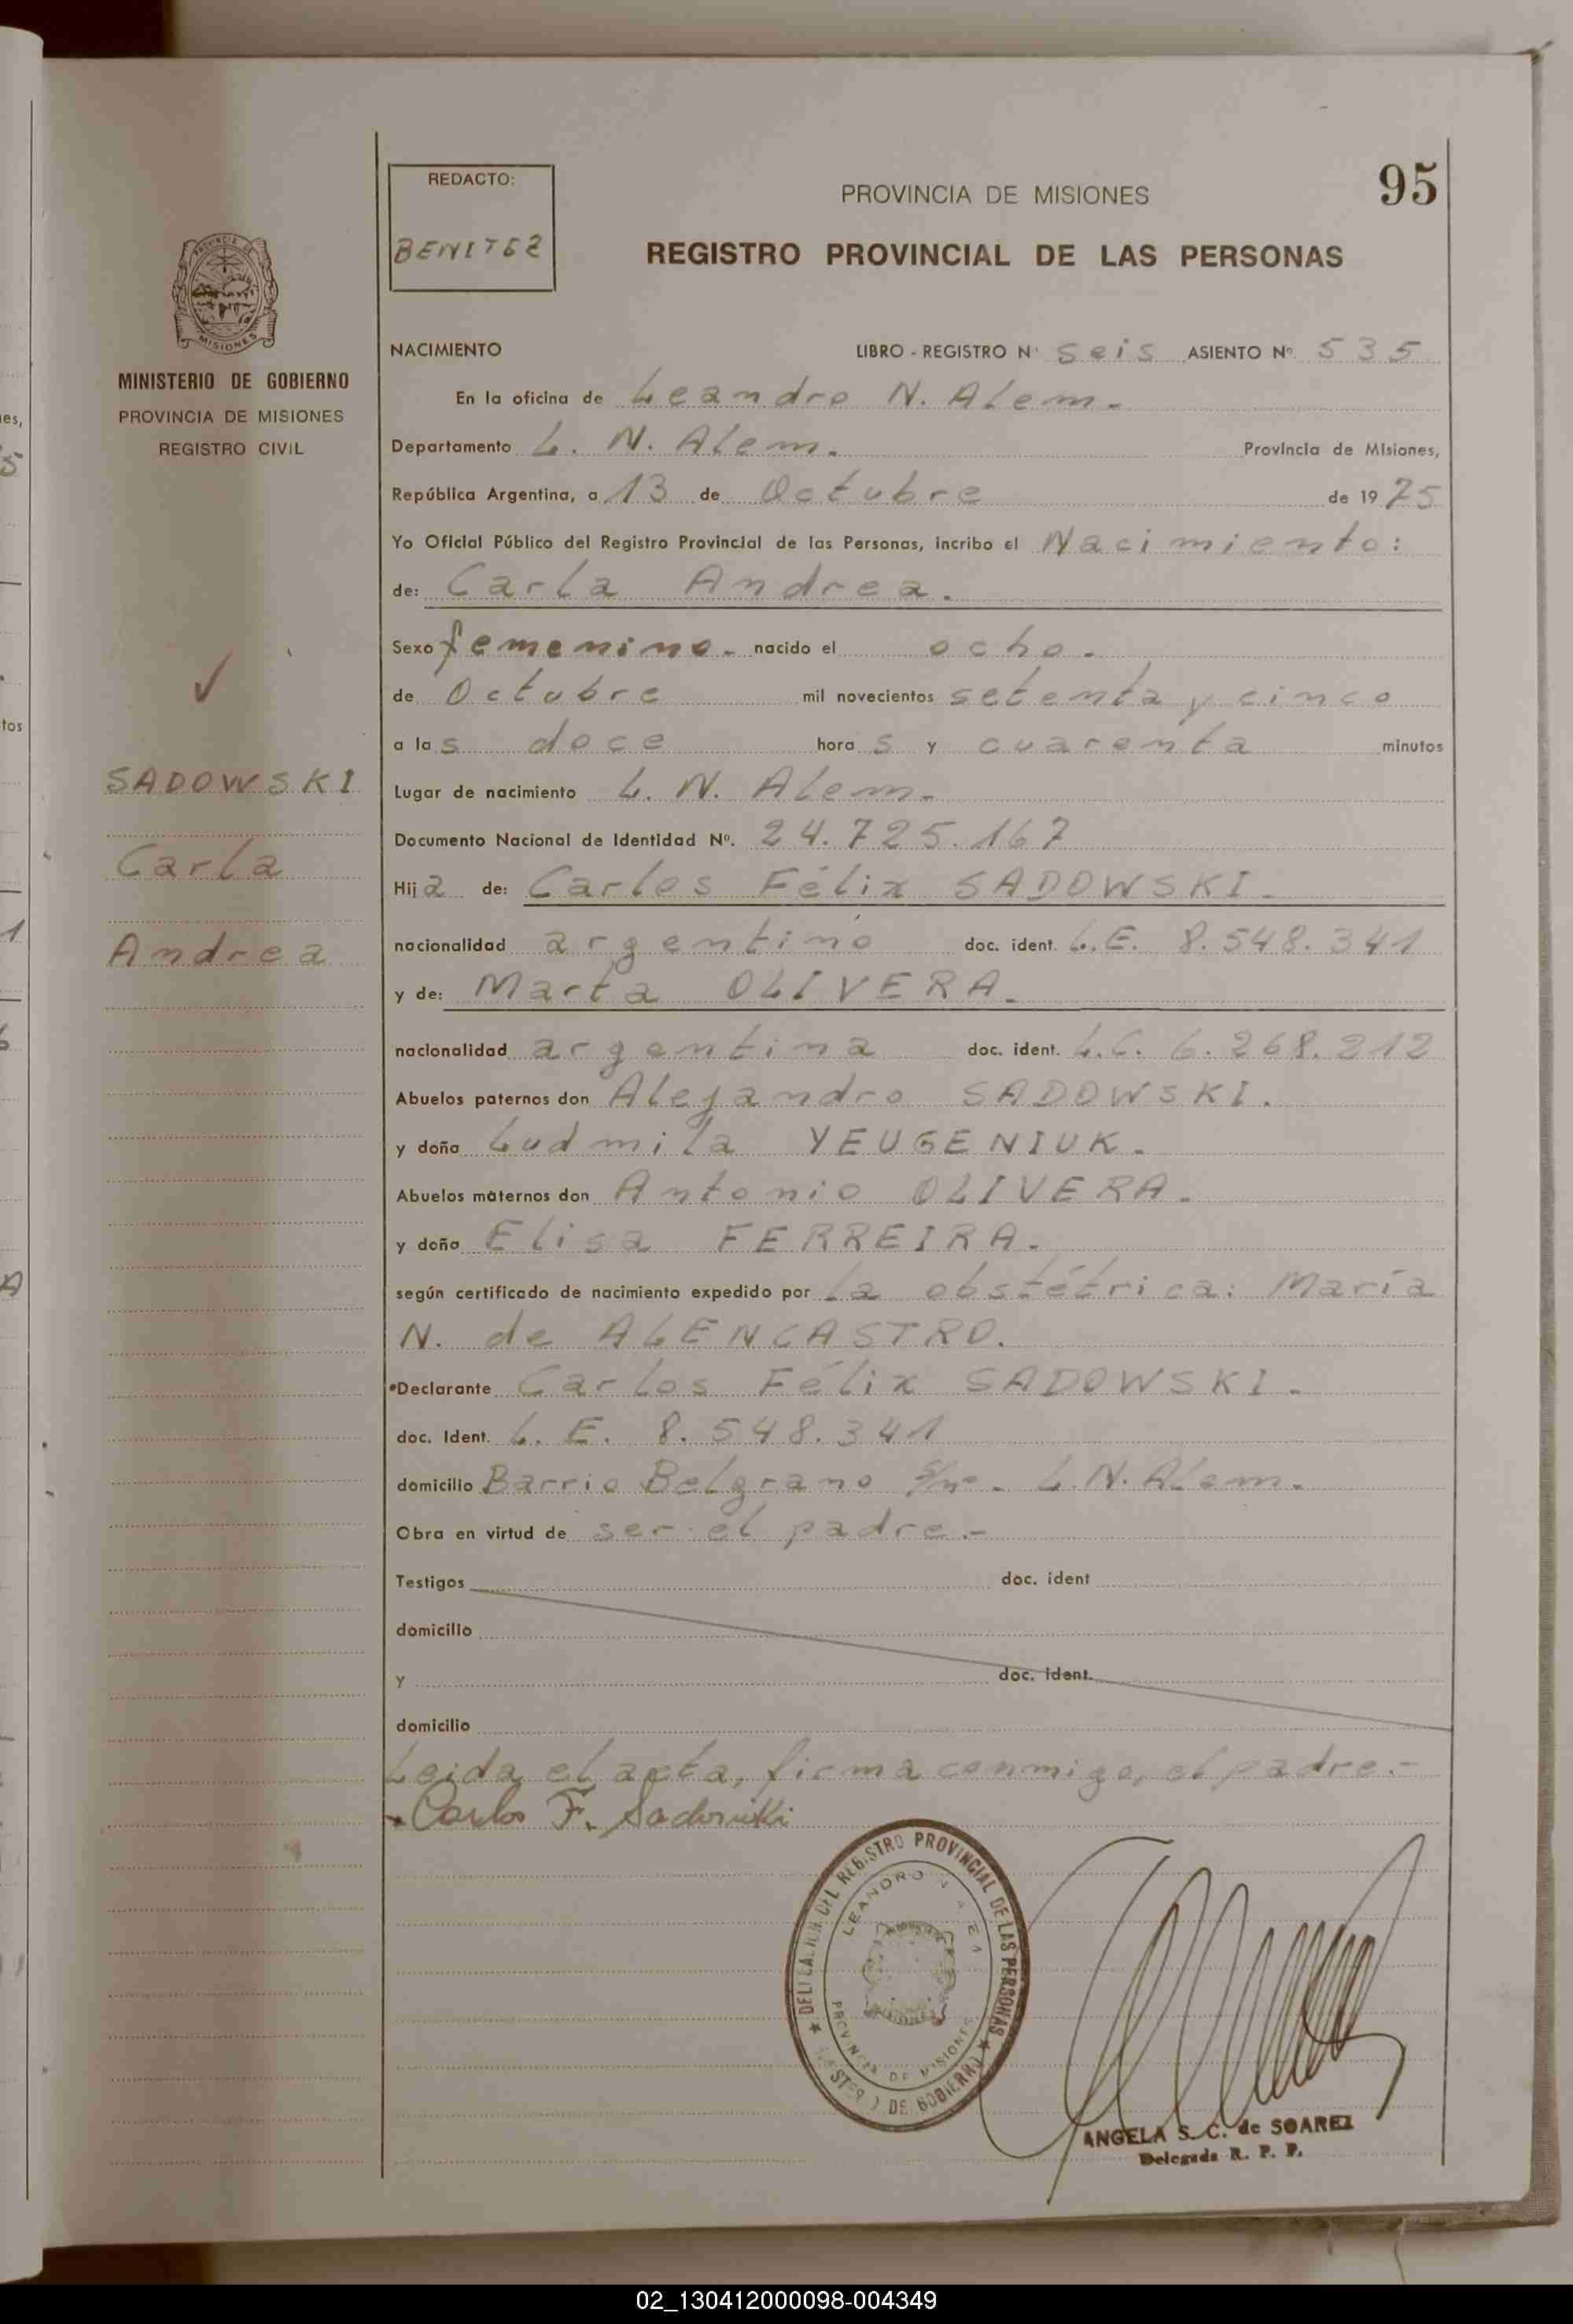 REDACTO:
BENITEZ
PROVINCIA DE MISIONES
95
REGISTRO PROVINCIAL DE LAS PERSONAS
PROVINCIA DE
MISIONES
MINISTERIO DE GOBIERNO
PROVINCIA DE MISIONES
REGISTRO CIVIL
NACIMIENTO LIBRO - REGISTRO Nº seis ASIENTO Nº 535
En la oficina de Leandro N. Alem.
Departamento L. N. Alem. Provincia de Misiones,
República Argentina, a 13 de Octubre de 1975
Yo Oficial Público del Registro Provincial de las Personas, incribo el Nacimiento:
de: Carla Andrea.
Sexo femenino. nacido el ocho.
de Octubre mil novecientos setenta y cinco
a las doce horas y cuarenta minutos
SADOWSKI
Carla
Andrea
Lugar de nacimiento L. N. Alem.
Documento Nacional de Identidad Nº. 24.725.167
Hija de: Carlos Félix SADOWSKI.
nacionalidad argentino doc. ident. L.E. 8.548.341
y de: Marta OLIVERA.
nacionalidad argentina doc. ident. L.C. 6.268.212
Abuelos paternos don Alejandro SADOWSKI.
y doña Ludmila YEUGENIUK.
Abuelos maternos don Antonio OLIVERA.
y doña Elisa FERREIRA.
según certificado de nacimiento expedido por la obstétrica: María
N. de ALENCASTRO.
Declarante Carlos Félix SADOWSKI.
doc. Ident. L. E. 8.548.341
domicilio Barrio Belgrano s/nº. L.N.Alem.
Obra en virtud de ser el padre.-
Testigos doc. ident
domicilio
y doc. ident.
domicilio
Leida el acta, firma conmigo, el padre.-
Carlos F. Sadowski
DELEGACION DEL REGISTRO PROVINCIAL DE LAS PERSONAS
LEANDRO N. ALEM
PROVINCIA DE MISIONES
MINISTERIO DE GOBIERNO
ANGELA S. C. de SOAREZ
Delegada R. P. P.
02_130412000098-004349